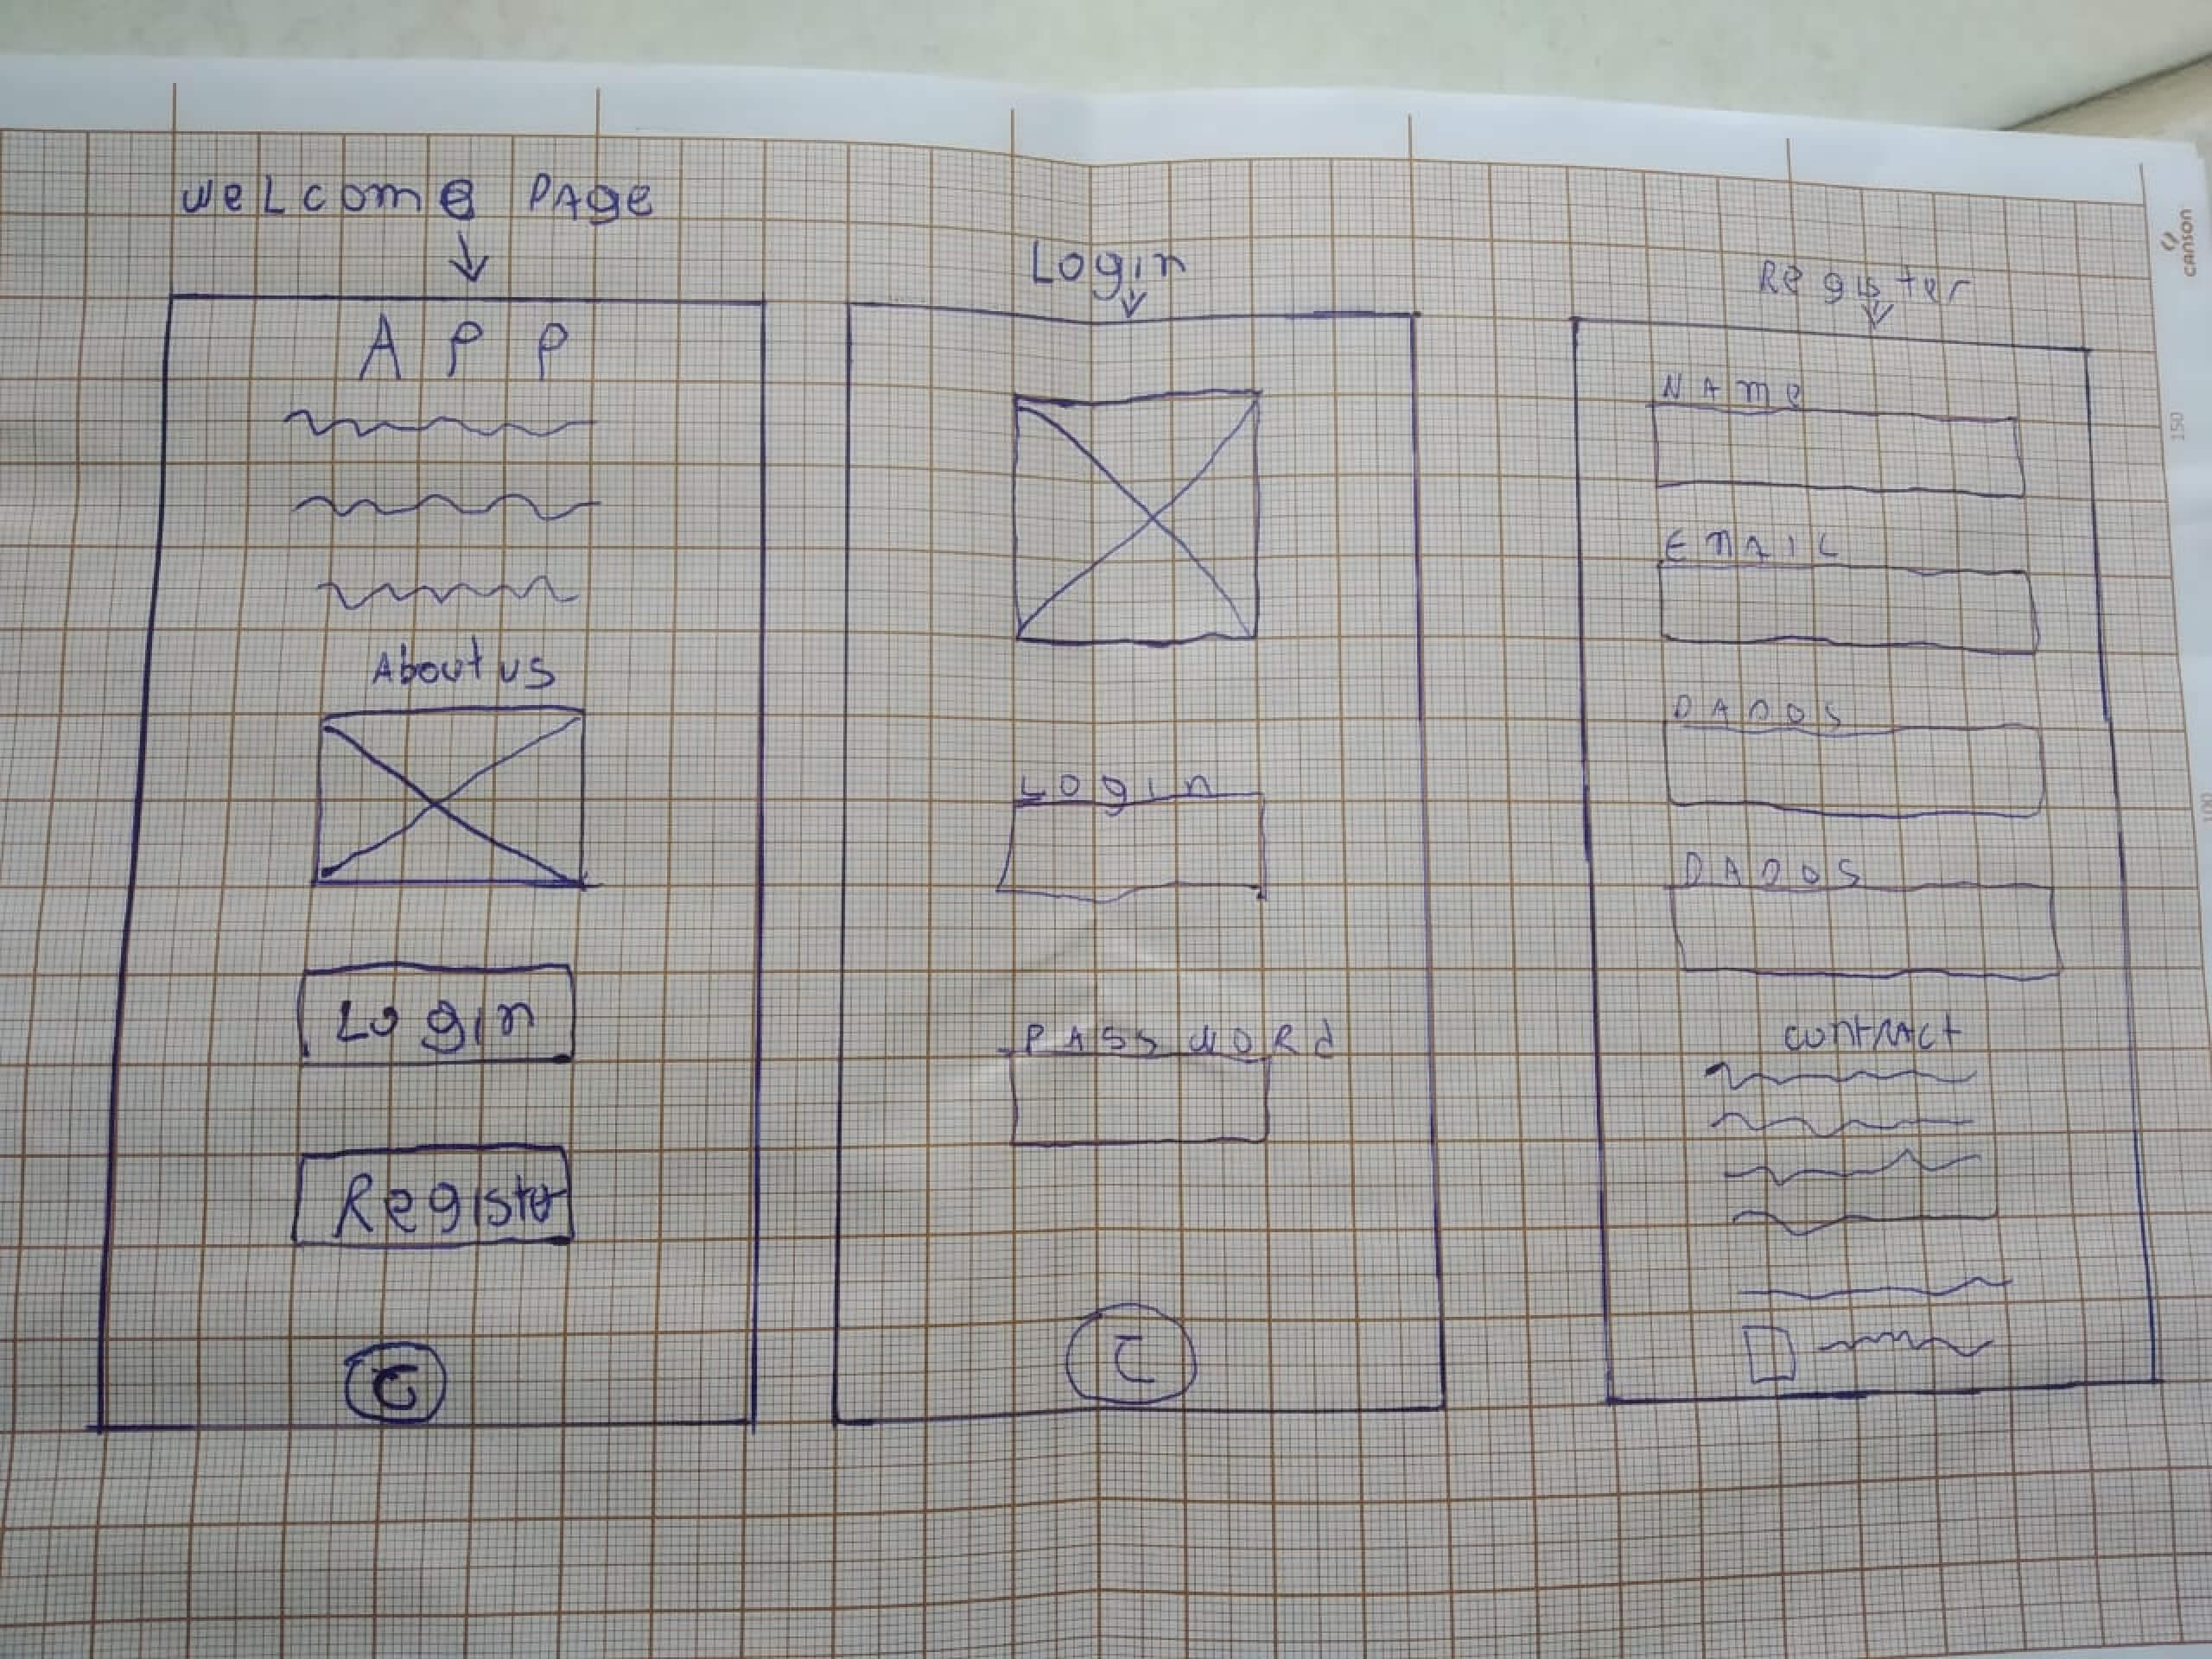 WELCOME PAGE
APP
About us
Login
Register
C
Login
Login
PASSWORD
C
Register
NAME
EMAIL
DADOS
DADOS
contract
CANSON
150
100